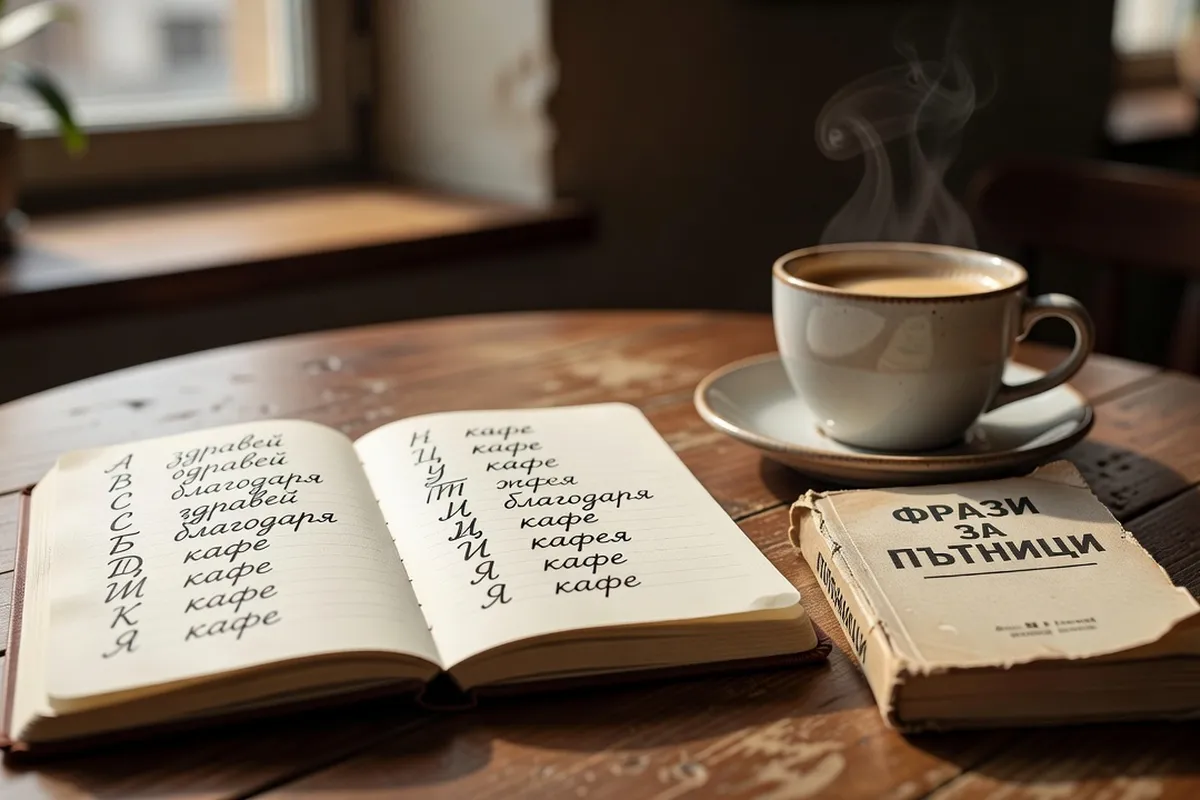 А здравей
В одравей
С благодаря
С здравей
Б благодаря
Д кафе
Ш кафе
К кафе
Я кафе
Н кафе
Ц кафе
У кафе
Ш жфея
И благодаря
И кафе
И кафея
Я кафе
Я кафе
ФРАЗИ
ЗА
ПЪТНИЦИ